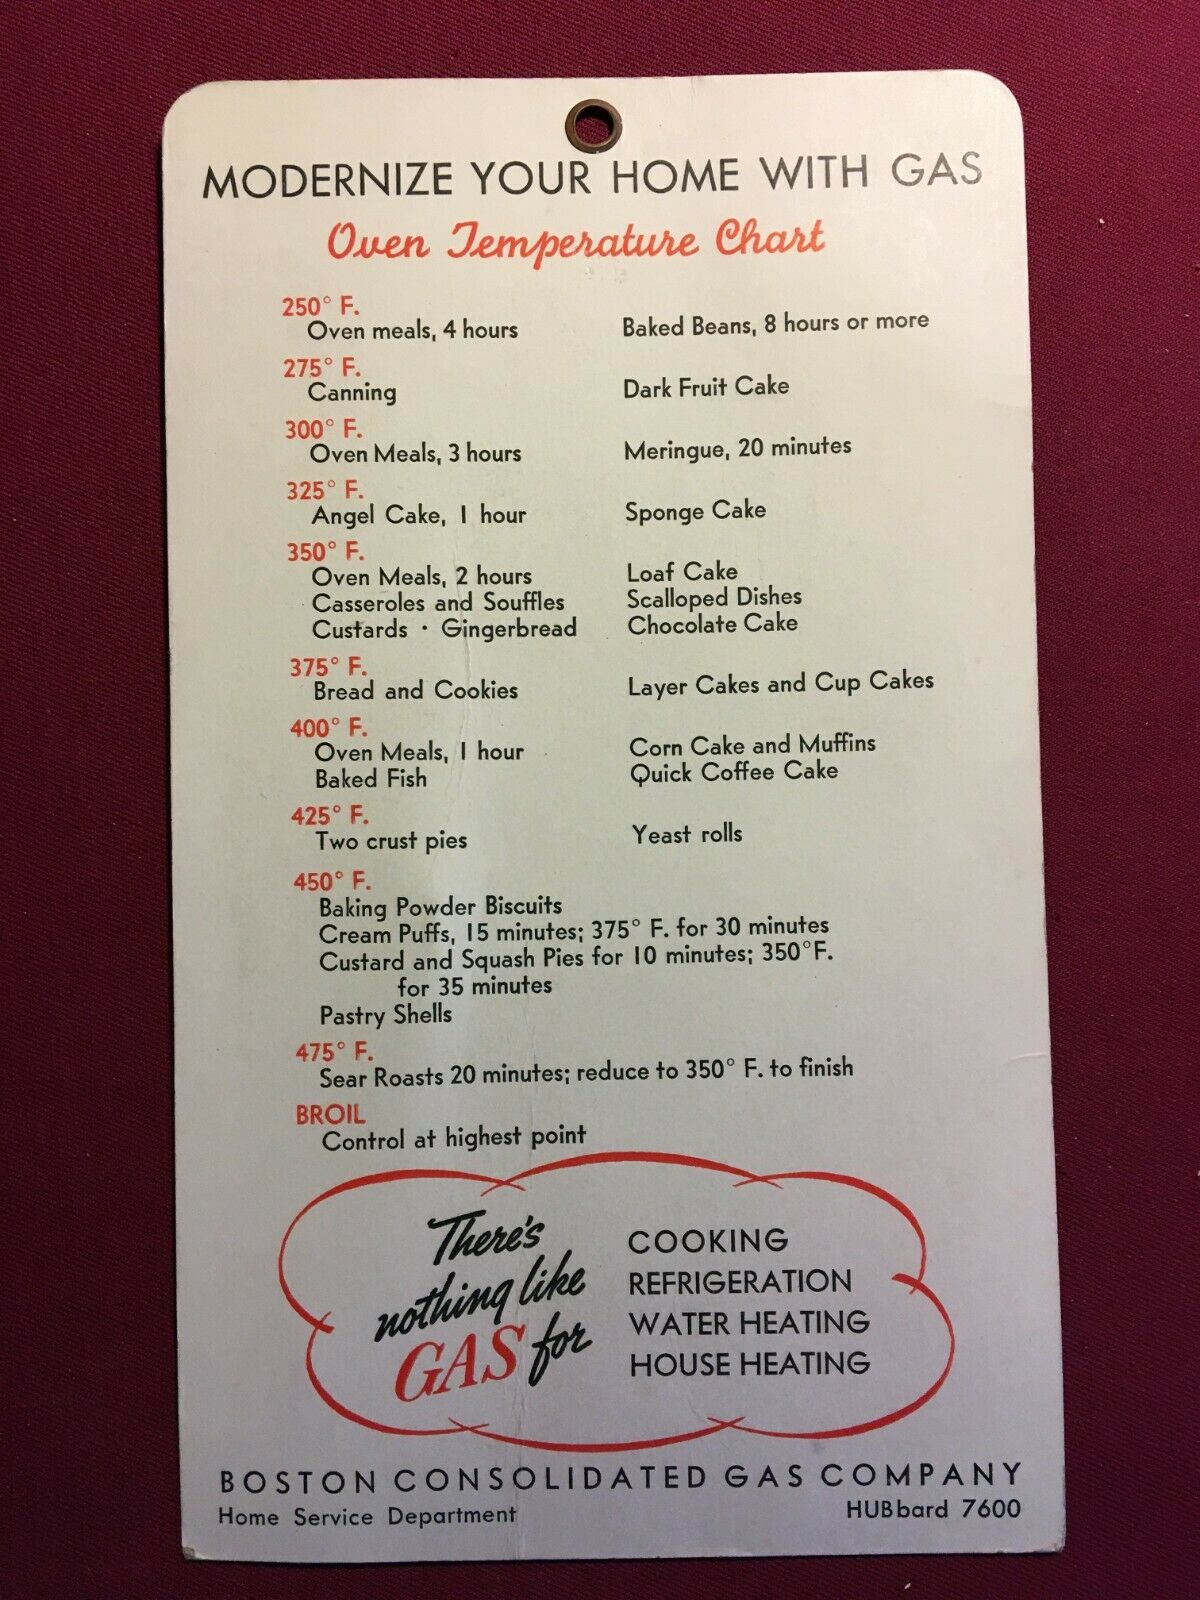 MODERNIZE YOUR HOME WITH GAS
Oven Temperature Chart
250° F.
Oven meals, 4 hours
Baked Beans, 8 hours or more
275° F.
Canning
Dark Fruit Cake
300° F.
Oven Meals, 3 hours
Meringue, 20 minutes
325° F.
Angel Cake, 1 hour
Sponge Cake
350° F.
Oven Meals, 2 hours
Loaf Cake
Casseroles and Souffles
Scalloped Dishes
Custards · Gingerbread
Chocolate Cake
375° F.
Bread and Cookies
Layer Cakes and Cup Cakes
400° F.
Oven Meals, 1 hour
Corn Cake and Muffins
Baked Fish
Quick Coffee Cake
425° F.
Two crust pies
Yeast rolls
450° F.
Baking Powder Biscuits
Cream Puffs, 15 minutes; 375° F. for 30 minutes
Custard and Squash Pies for 10 minutes; 350°F.
for 35 minutes
Pastry Shells
475° F.
Sear Roasts 20 minutes; reduce to 350° F. to finish
BROIL
Control at highest point
There's
nothing like
GAS for
COOKING
REFRIGERATION
WATER HEATING
HOUSE HEATING
BOSTON CONSOLIDATED GAS COMPANY
Home Service Department
HUBbard 7600